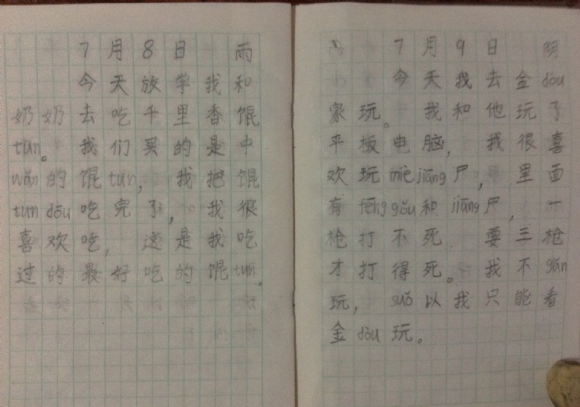 7月8日 雨
今天放学我和
奶奶去吃千里香馄
tun。我们买的是中
wǎn的馄tun，我把馄
tun dōu吃完了，我很
喜欢吃，这是我吃
过的最好吃的馄tun。
7月9日 阴
今天我去金dòu
家玩。我和他玩了
平板电脑，我很喜
欢玩miè jiāng尸，里面
有fēng gǒu和jiāng尸，一
枪打不死 要三枪
才打得死。我不gǎn
玩，suǒ以我只能看
金dòu玩。